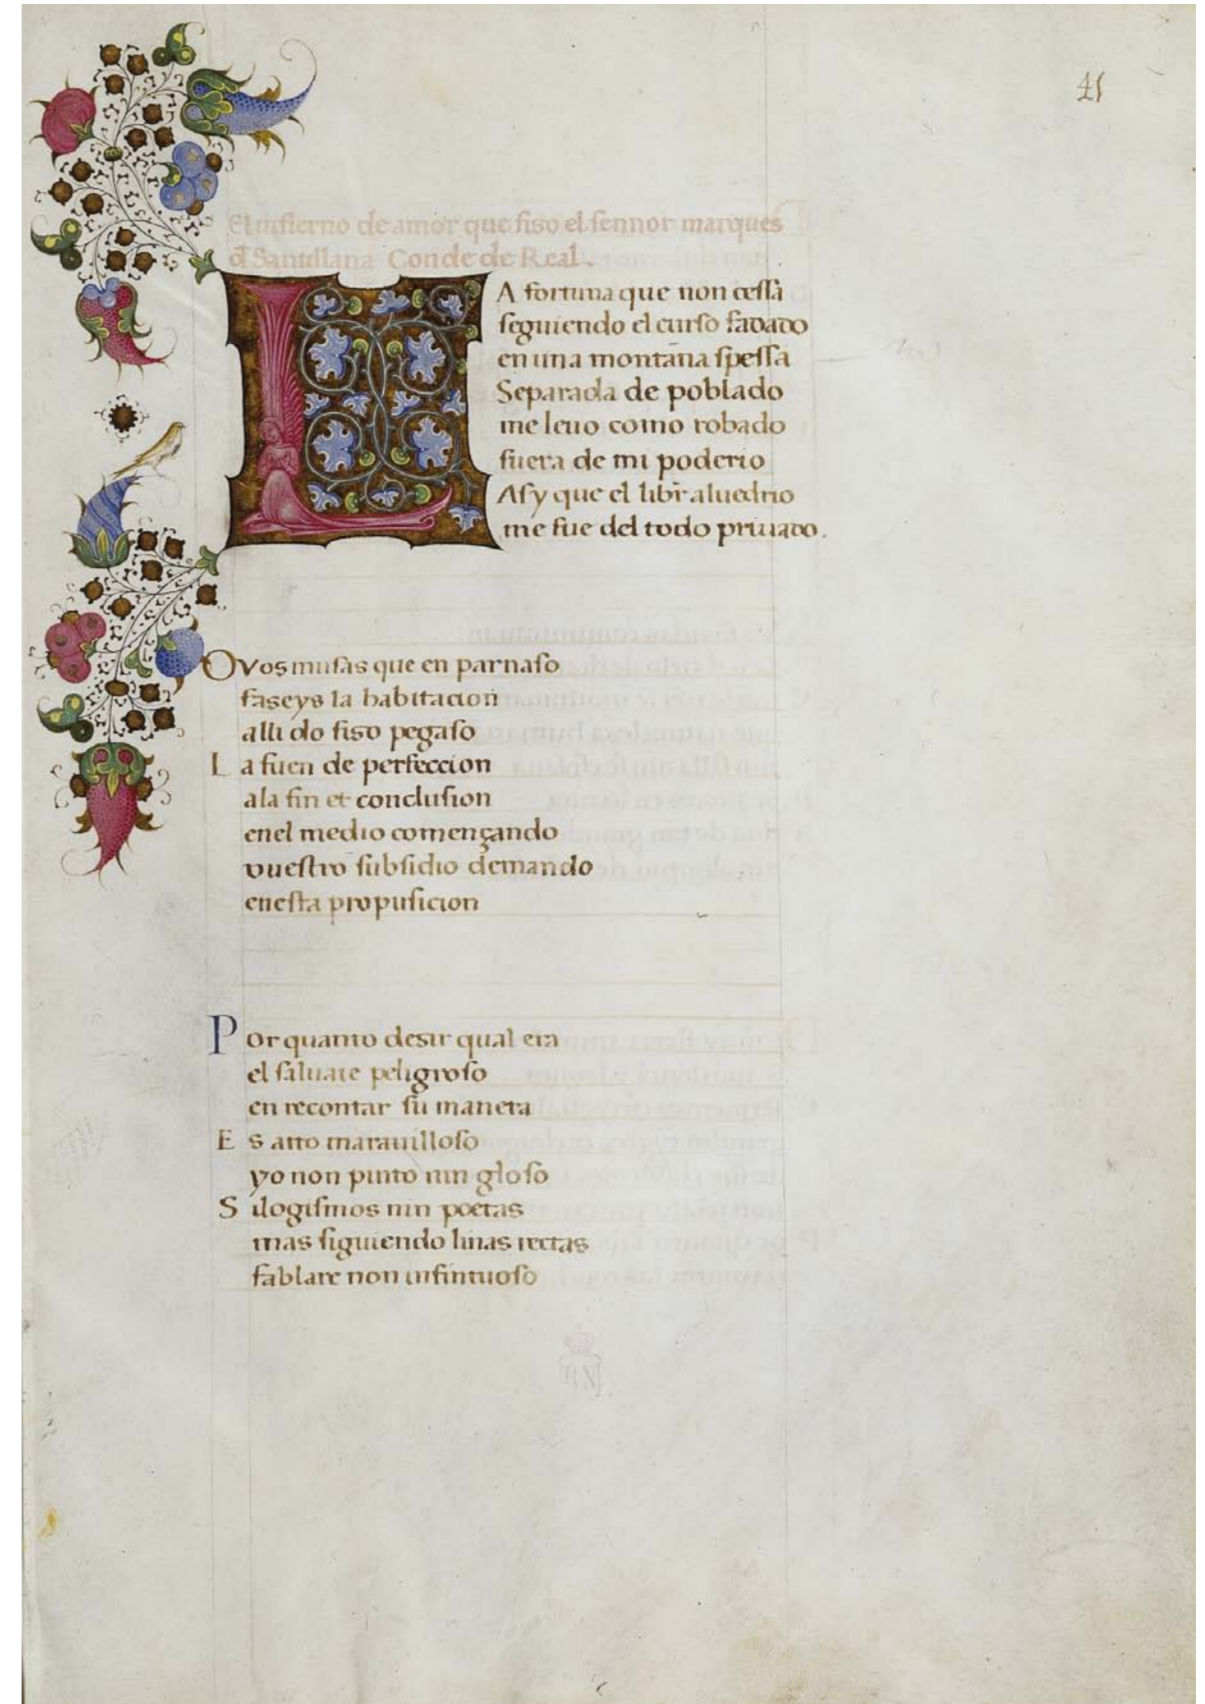 41
El infierno de amor que fiso el sennor marques
đ Santillana Conde de Real.
LA fortuna que non cessa
seguiendo el curso fadado
en una montana spessa
Separada de poblado
me leuo como robado
fuera de mi poderio
Asy que el libr̄ aluedrio
me fue del todo priuado.
O vos musas que en parnaso
faseys la habitacion
alli do fiso pegaso
La fuen de perfeccion
ala fin et conclusion
enel medio començando
vuestro subsidio demando
enesta propusicion
Por quanto desir qual era
el saluaie peligroso
en recontar su manera
Es atto marauilloso
yo non pinto nin gloso
Silogismos nin poetas
mas siguiendo linas rectas
fablare non infintuoso
BN